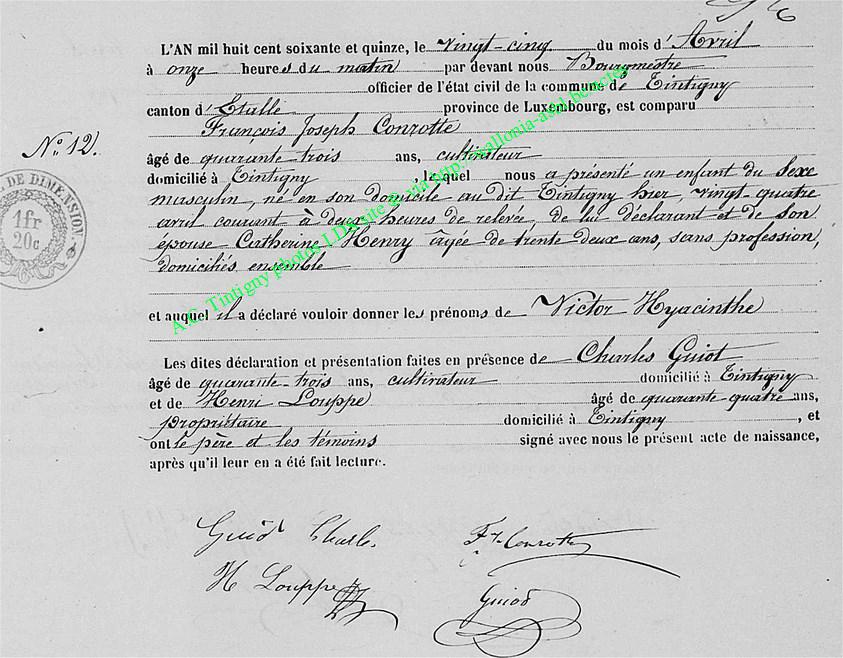 L'AN mil huit cent soixante et quinze, le vingt-cinq du mois d'Avril
à onze heures du matin par devant nous Bourgmestre
officier de l'état civil de la commune de Tintigny
canton d'Etalle province de Luxembourg, est comparu
François Joseph Conrotte
No 12.
âgé de quarante trois ans, cultivateur
domicilié à Tintigny, lequel nous a présenté un enfant du sexe
masculin, né en son domicile au dit Tintigny hier, vingt-quatre
avril courant à deux heures de relevée, de lui déclarant et de son
épouse Catherine Henry âgée de trente deux ans, sans profession,
domiciliés ensemble
DE DIMENSION
1fr
20c
et auquel il a déclaré vouloir donner les prénoms de Victor Hyacinthe
Les dites déclaration et présentation faites en présence de Charles Guiot
âgé de quarante-trois ans, cultivateur domicilié à Tintigny
et de Henri Louppe âgé de quarante quatre ans,
propriétaire domicilié à Tintigny, et
ont le père et les témoins signé avec nous le présent acte de naissance,
après qu'il leur en a été fait lecture.
Guiot Charles
Fs Conrotte
H Louppe
Guiot
A.C. Tintigny photos LDS site @ via http://wallonia-asbl.be/actes